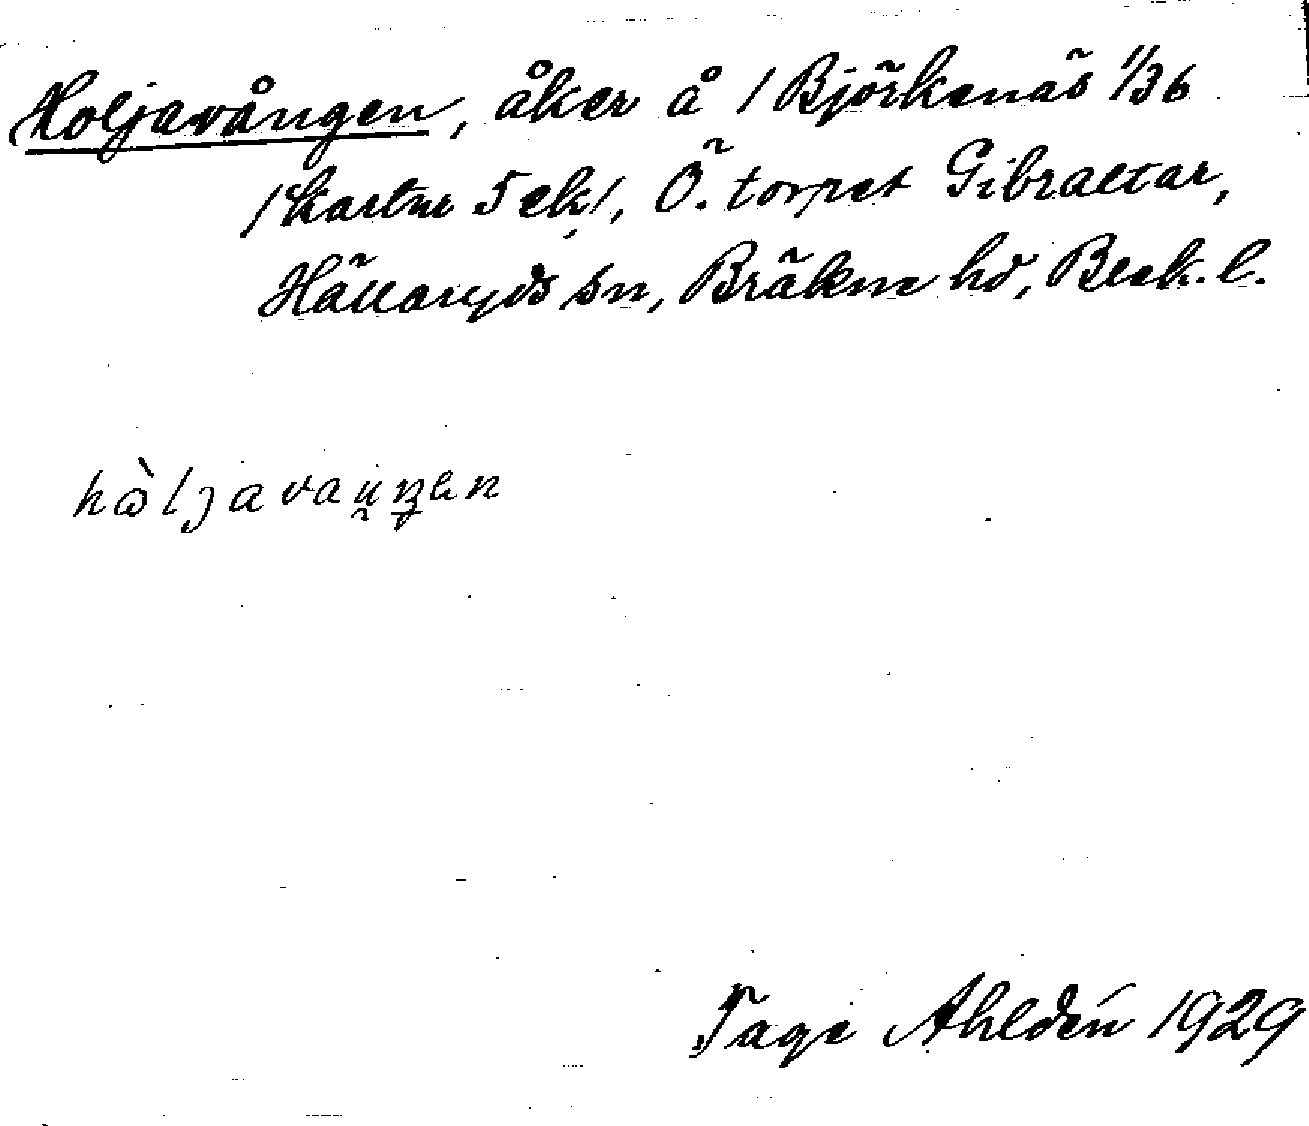 Holjavången, åker å /Björkenäs 1/36
/Karlm 5 ek/, Ö. torpet Gibraltar,
Hällaryds sn, Bräkne hd, Blek. l.
hὼljavau̯ŋen
Tage Ahldén 1929